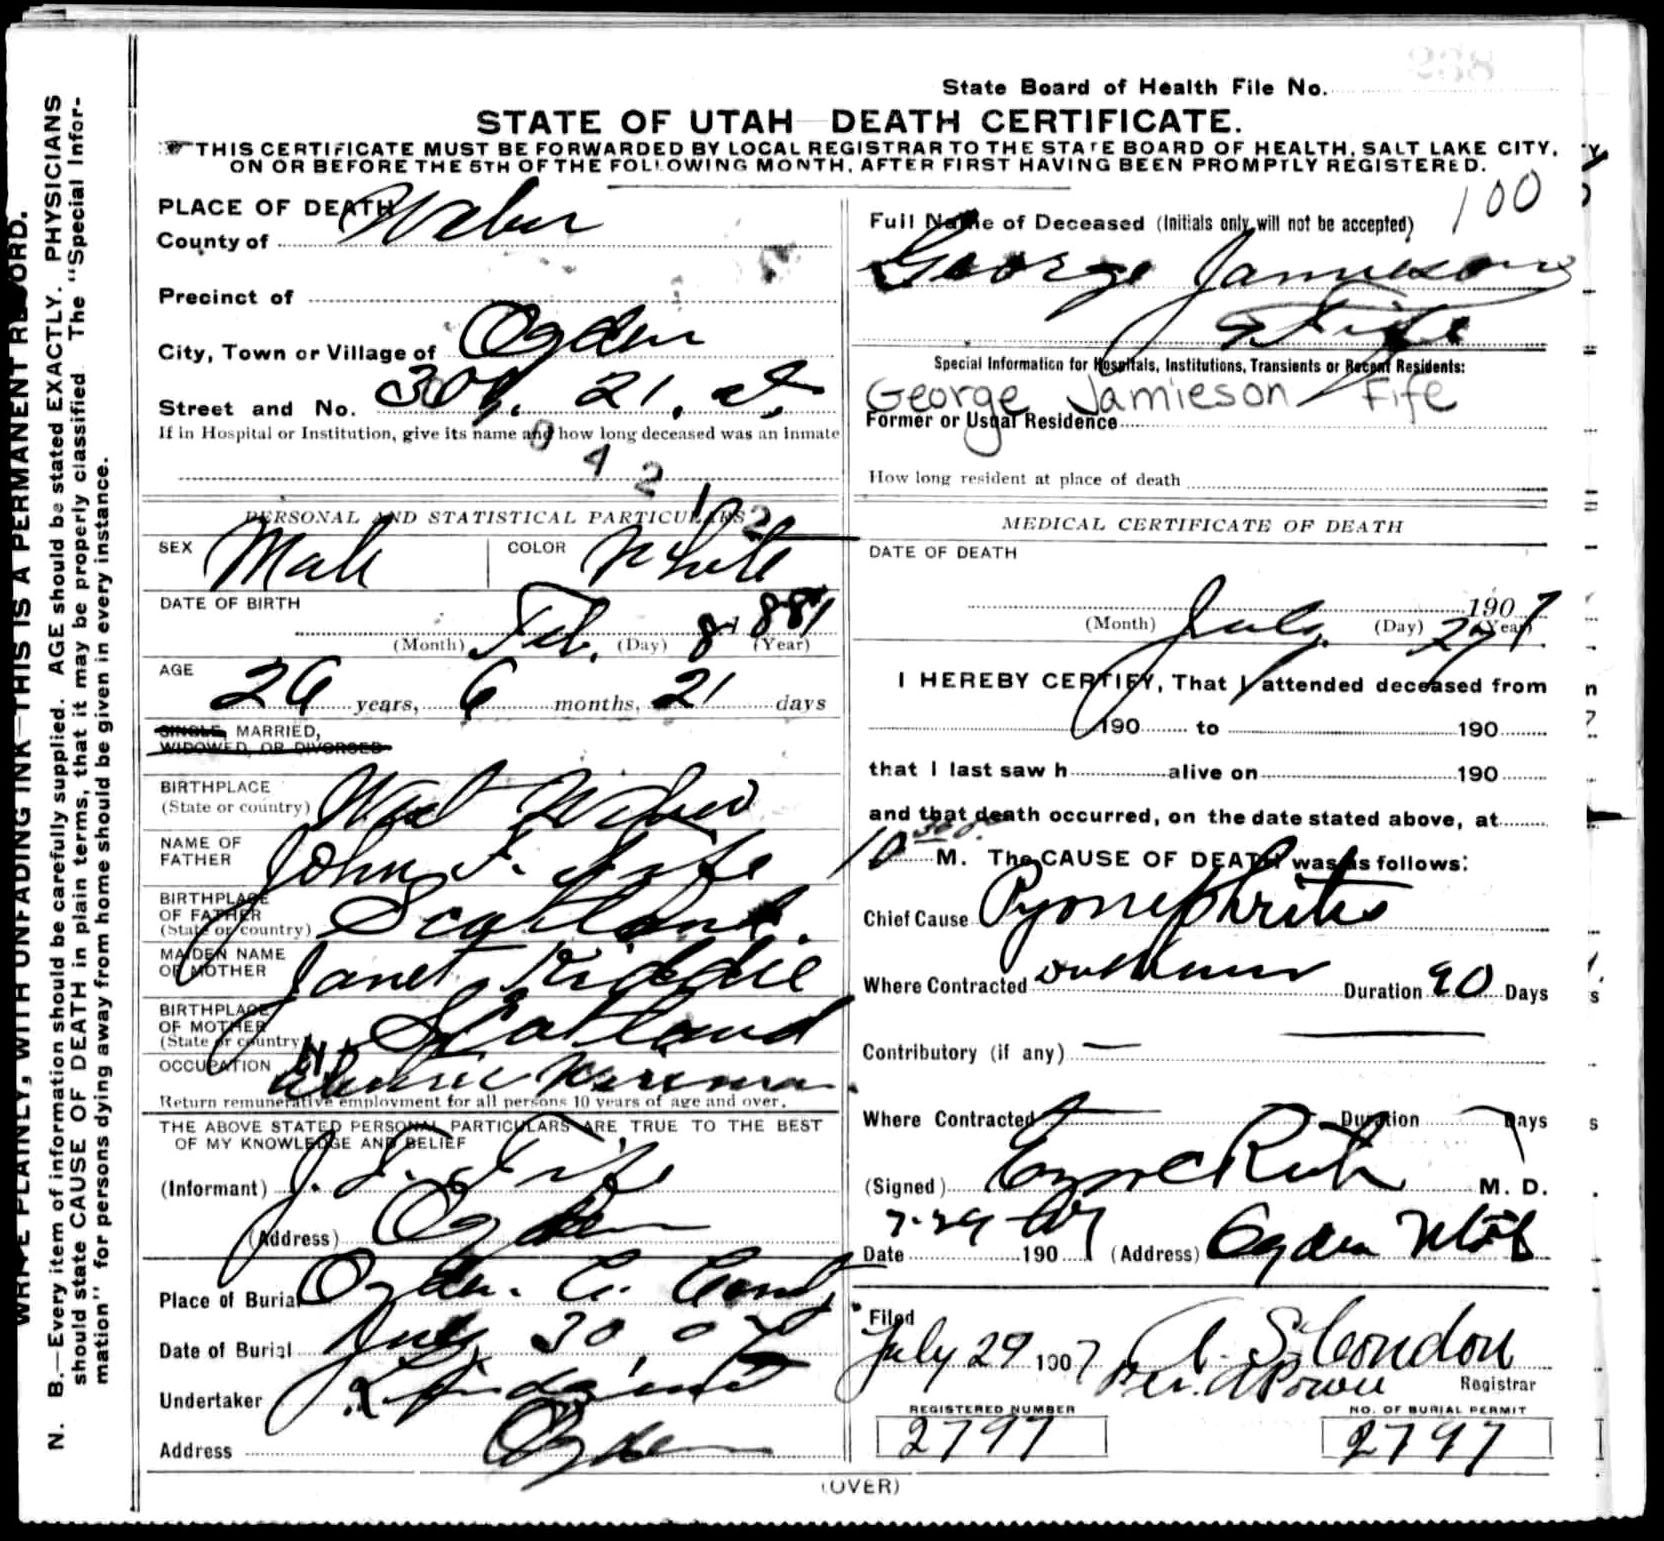 238
State Board of Health File No.
STATE OF UTAH DEATH CERTIFICATE.
THIS CERTIFICATE MUST BE FORWARDED BY LOCAL REGISTRAR TO THE STATE BOARD OF HEALTH, SALT LAKE CITY,
ON OR BEFORE THE 5TH OF THE FOLLOWING MONTH, AFTER FIRST HAVING BEEN PROMPTLY REGISTERED.
WRITE PLAINLY, WITH UNFADING INK—THIS IS A PERMANENT RECORD.
N. B.—Every item of information should be carefully supplied. AGE should be stated EXACTLY. PHYSICIANS
should state CAUSE OF DEATH in plain terms, that it may be properly classified. The "Special Infor-
mation" for persons dying away from home should be given in every instance.
PLACE OF DEATH
County of Weber
Precinct of
City, Town or Village of Ogden
Street and No. 21. st.
If in Hospital or Institution, give its name and how long deceased was an inmate
PERSONAL AND STATISTICAL PARTICULARS
SEX Male COLOR White
DATE OF BIRTH
(Month) Feb. (Day) 8 (Year) 1881
AGE
26 years, 6 months, 21 days
SINGLE, MARRIED,
WIDOWED, OR DIVORSED
BIRTHPLACE
(State or country) West Weber
NAME OF
FATHER John F. Fife
BIRTHPLACE
OF FATHER
(State or country) Scotland.
MAIDEN NAME
OF MOTHER Janet Kiddie
BIRTHPLACE
OF MOTHER
(State or country) Scotland
OCCUPATION Electric Wireman
Return remunerative employment for all persons 10 years of age and over.
THE ABOVE STATED PERSONAL PARTICULARS ARE TRUE TO THE BEST
OF MY KNOWLEDGE AND BELIEF
(Informant) Fife
(Address) Ogden
Place of Burial Ogden. C. Cemt
Date of Burial July 30, 07
Undertaker
Address Ogden
100
Full Name of Deceased (Initials only will not be accepted)
George Jamieson
Fife
Special Information for Hospitals, Institutions, Transients or Recent Residents:
George Jamieson Fife
Former or Usual Residence
How long resident at place of death
MEDICAL CERTIFICATE OF DEATH
DATE OF DEATH
(Month) July (Day) 27 1907 (Year)
I HEREBY CERTIFY, That I attended deceased from
190 to 190
that I last saw h alive on 190
and that death occurred, on the date stated above, at
10 30 M. The CAUSE OF DEATH was as follows:
Chief Cause Pyonephritis
Where Contracted unknown Duration 90 Days
Contributory (if any) —
Where Contracted Duration Days
(Signed) M. D.
Date 7-29 1907 (Address) Ogden Utah
Filed
July 29 1907 A. S. Condon
Registrar
REGISTERED NUMBER
2797
NO. OF BURIAL PERMIT
2797
(OVER)